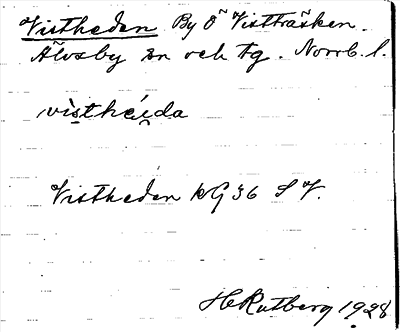 Vistheden By Ö Vistträsken.
Älvsby sn och tg. Norrb. l.
vìsthéi̯da
Vistheden KG 36 S V.
H Rutberg 1928